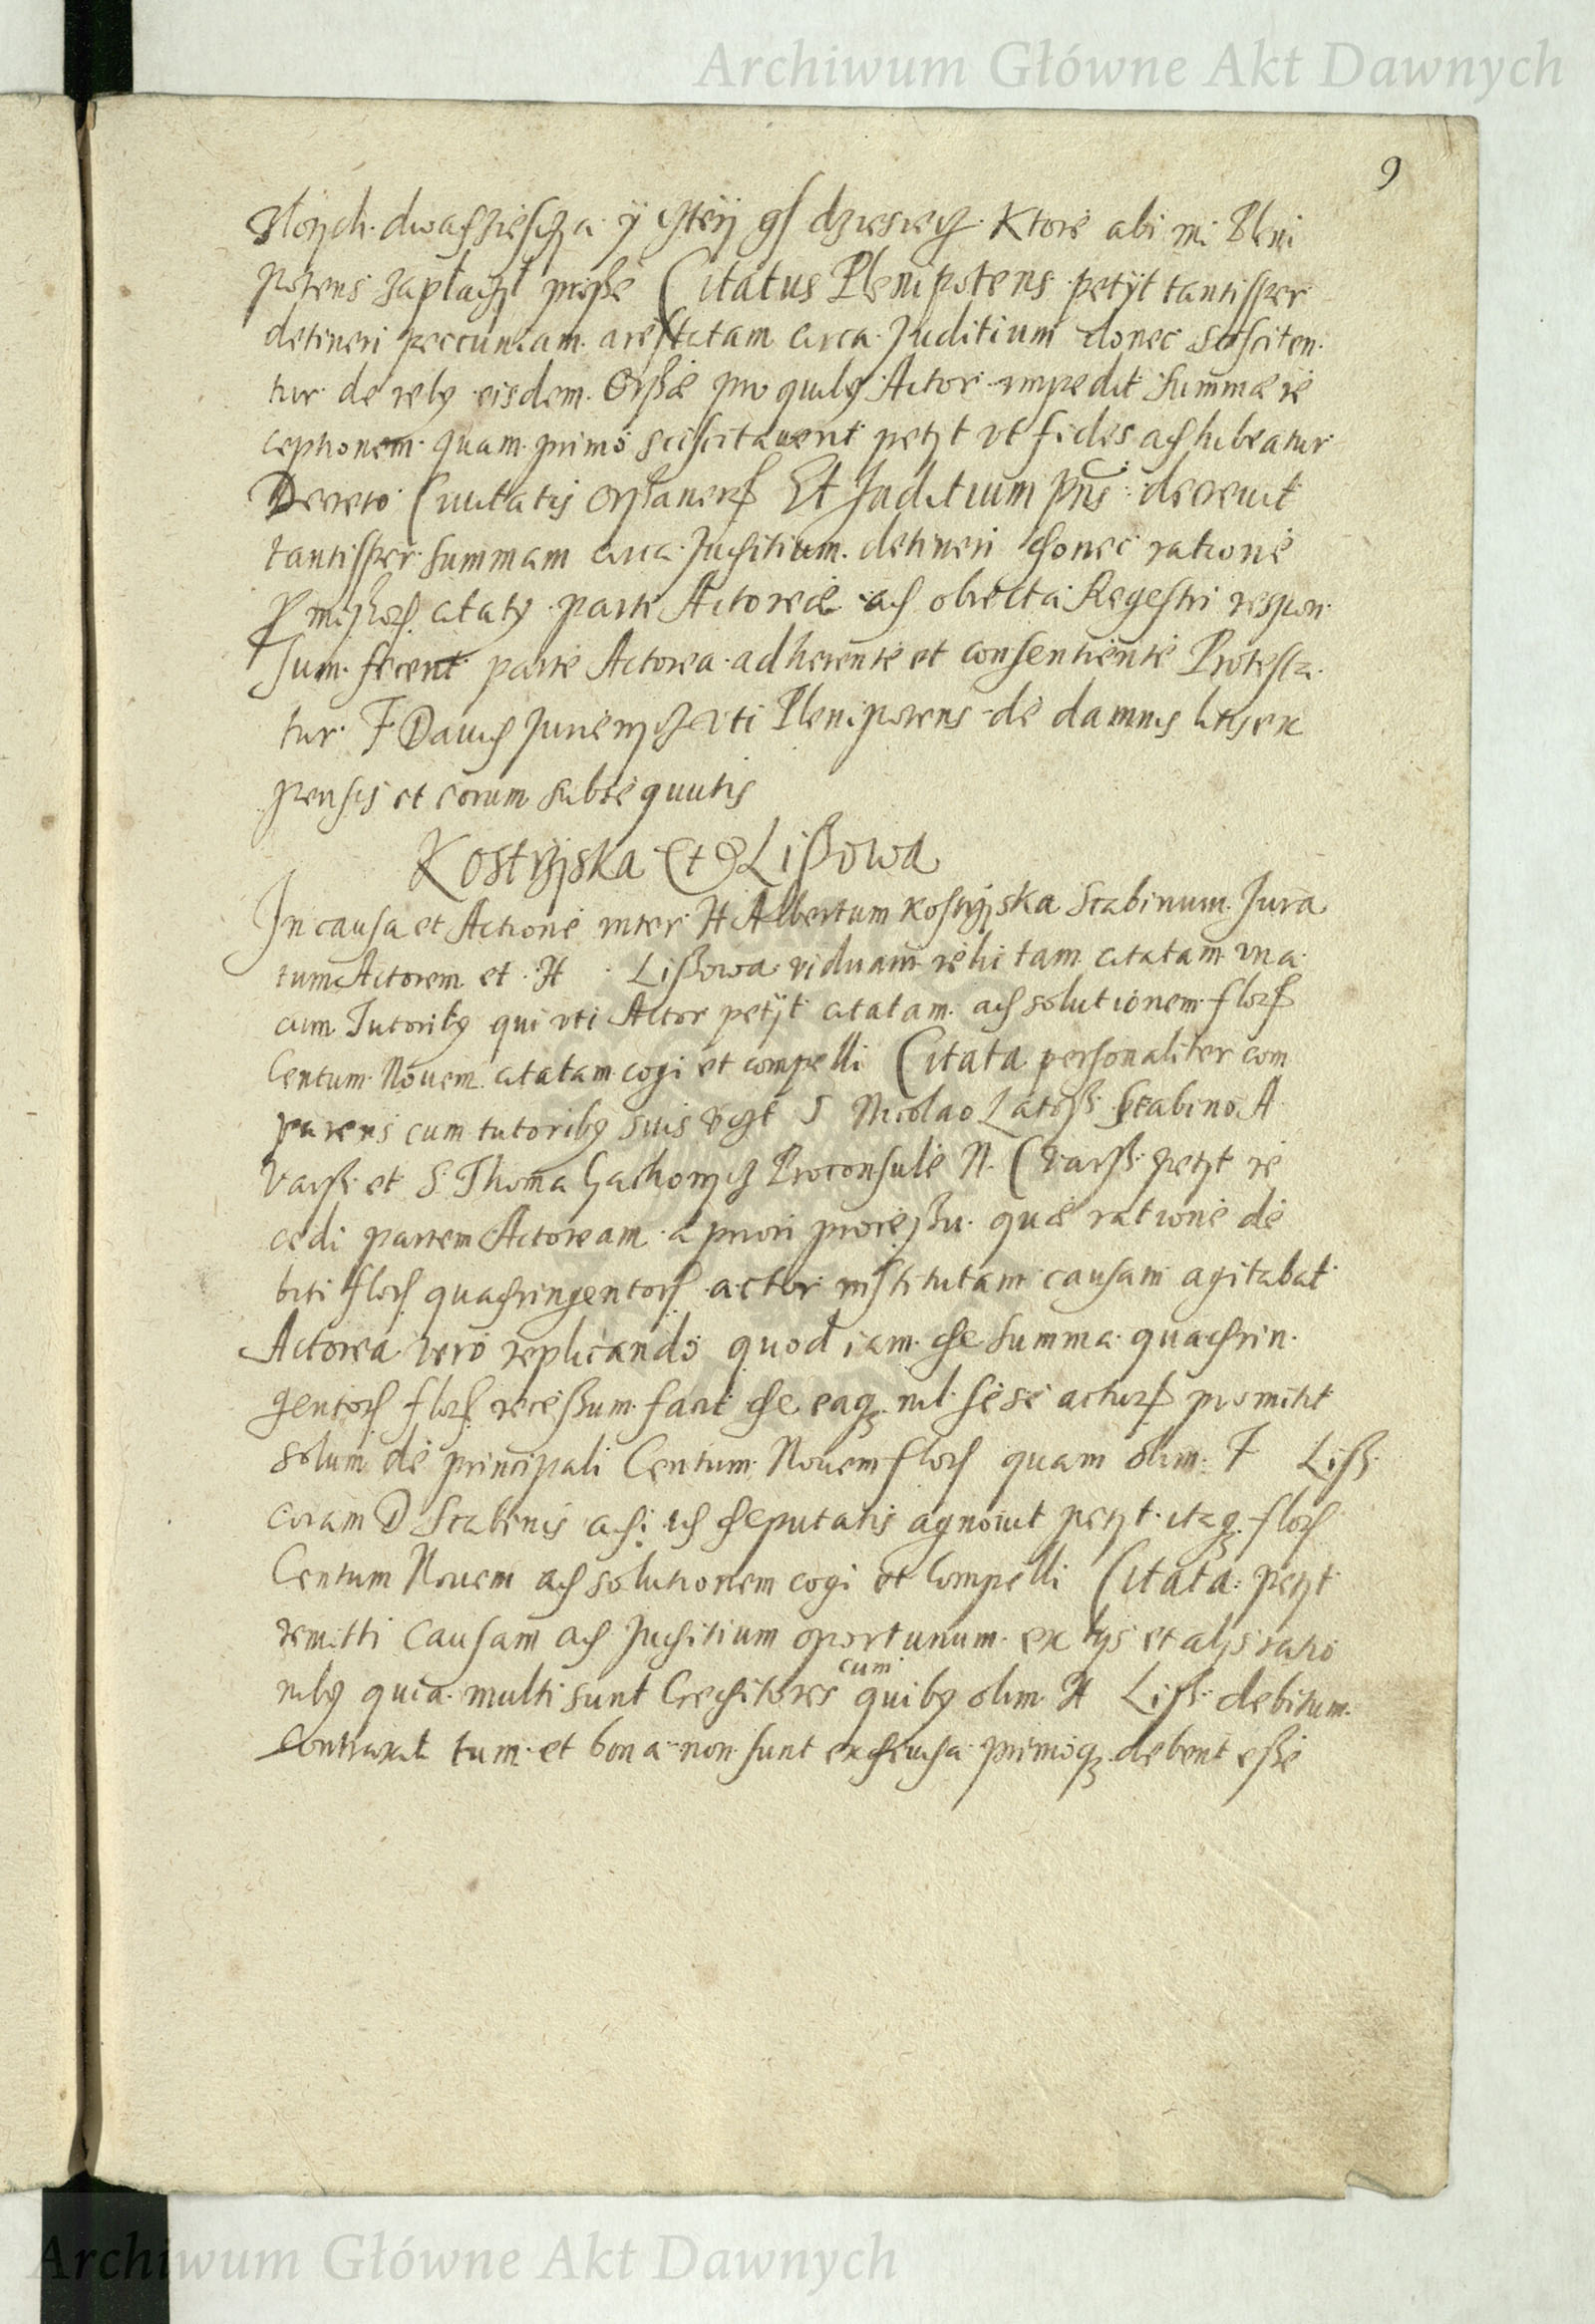 Archiwum Główne Akt Dawnych
9
zlotych dwadziescza y cztery gs dziesiecz Ktore abi mi Pleni
potens zaplaczyl prosze Citatus Plenipotens petyt tantisper
detineri peccuniam arestatam circa Juditium donec scisciten
tur de reby eisdem Orssae pro quiby Actor impedit summae re
ceptionem quam primo sciscitauerit petyt vt fides adhibeatur
Decreto Ciuitatis Orsanens Et Juditium pns decreuit
tantisper summam circa Juditium detineri donec ratione
pmissor citaty parti Actoreae ad obiecta Regestri respon
sum fecerit parte Actorea adherente et consentiente Protesta
tur F Dauid vti Plenipotens de damnis litis ex
pensis et eorum subsequutis
Kostrzyska Et Lißowa
In causa et Actione inter H Albertum Kostrzyska Scabinum Jura
tum Actorem et H Lißowa viduam relictam citatam vna
cum Tutoriby qui vti Actor petyt citatam ad solutionem flor
Centum Nouem citatam cogi et compelli Citata personaliter com
parens cum tutoriby suis S Nicolao Scabino A
Varss et S Thoma Proconsule N C Varss petyt re
cedi partem Actoream a priori processu quae ratione de
biti flor quadringentor actor institutam causam agitabat
Actorea vero replicando quod iam de summa quadrin
gentor flor recessum facit de eaq nil sese actur promittit
solum de principali Centum Nouem flor quam olim F Liss
coram D Scabinis ad id deputatis agnouit petyt itaq flor
Centum Nouem ad solutionem cogi et compelli Citata petyt
remitti causam ad Juditium oportunum ex ijs et alijs ratio
niby quia multi sunt Creditores cum quiby olim H Liss debitum
contraxit tum et bona non sunt primoq debent esse
Archiwum Główne Akt Dawnych